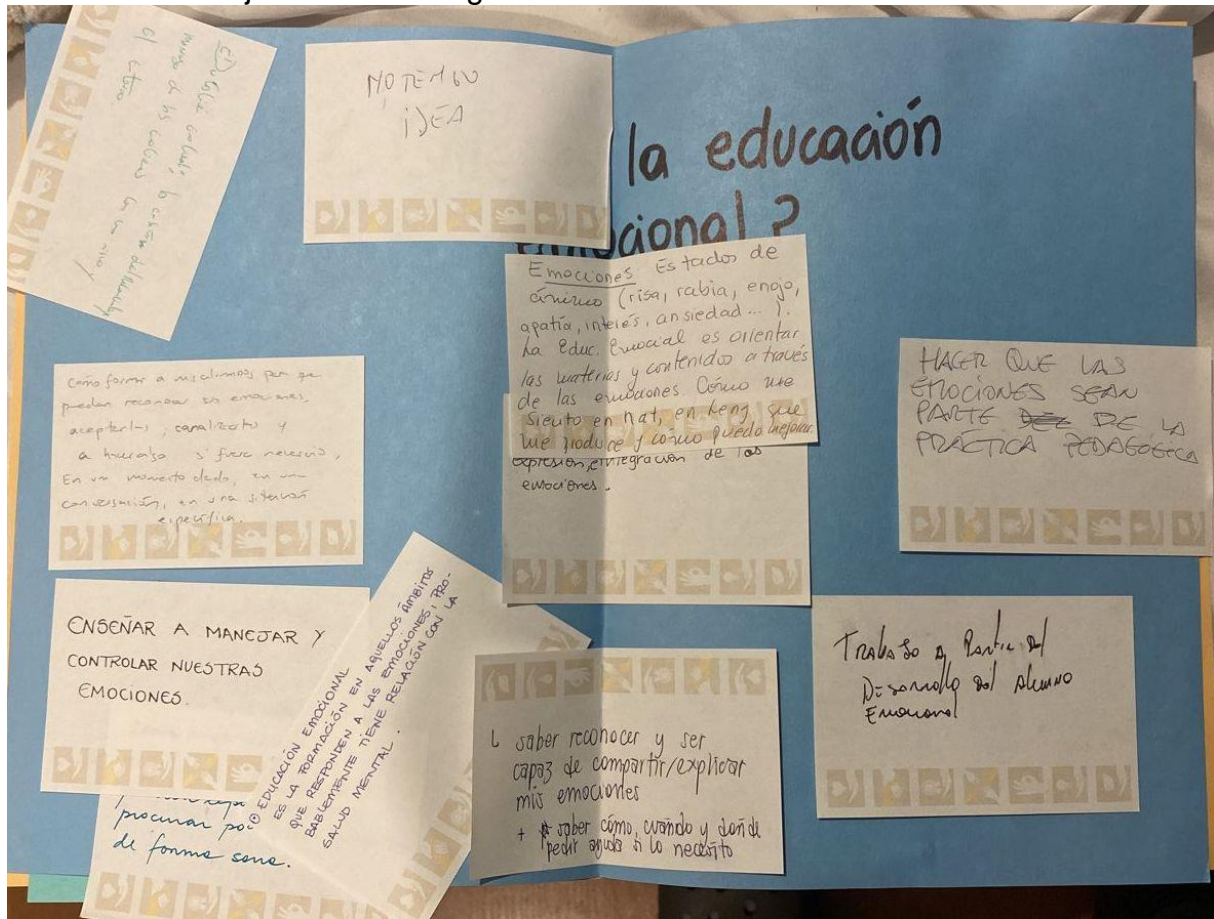 NO TENGO
IDEA
la educación
emocional?
Emociones Estados de
ánimo (risa, rabia, enojo,
apatía, interés, ansiedad... ).
La Educ. Emocial es orientar
las materias y contenidos a través
de las emociones. Como me
siento en Mat, en Leng, que
me produce y cómo puedo mejorar
expresión, e integración de las
emociones.
HACER QUE LAS
EMOCIONES SEAN
PARTE DE LA
PRÁCTICA PEDAGÓGICA
Cómo formar a mis alumnos para que
puedan reconocer sus emociones,
aceptarlas, canalizarlas y
si fuera necesario,
En un momento dado, en una
conversación, en una situación
específica.
ENSEÑAR A MANEJAR Y
CONTROLAR NUESTRAS
EMOCIONES.
EDUCACIÓN EMOCIONAL
ES LA FORMACIÓN EN AQUELLOS ÁMBITOS
QUE RESPONDEN A LAS EMOCIONES, PRO-
BABLEMENTE TIENE RELACIÓN CON LA
SALUD MENTAL.
procurar
de forma sana.
saber reconocer y ser
capaz de compartir/explicar
mis emociones
+ saber cómo, cuándo y dónde
pedir ayuda si lo necesito
Trabajo a Partir del
Desarrollo del Alumno
Emocional